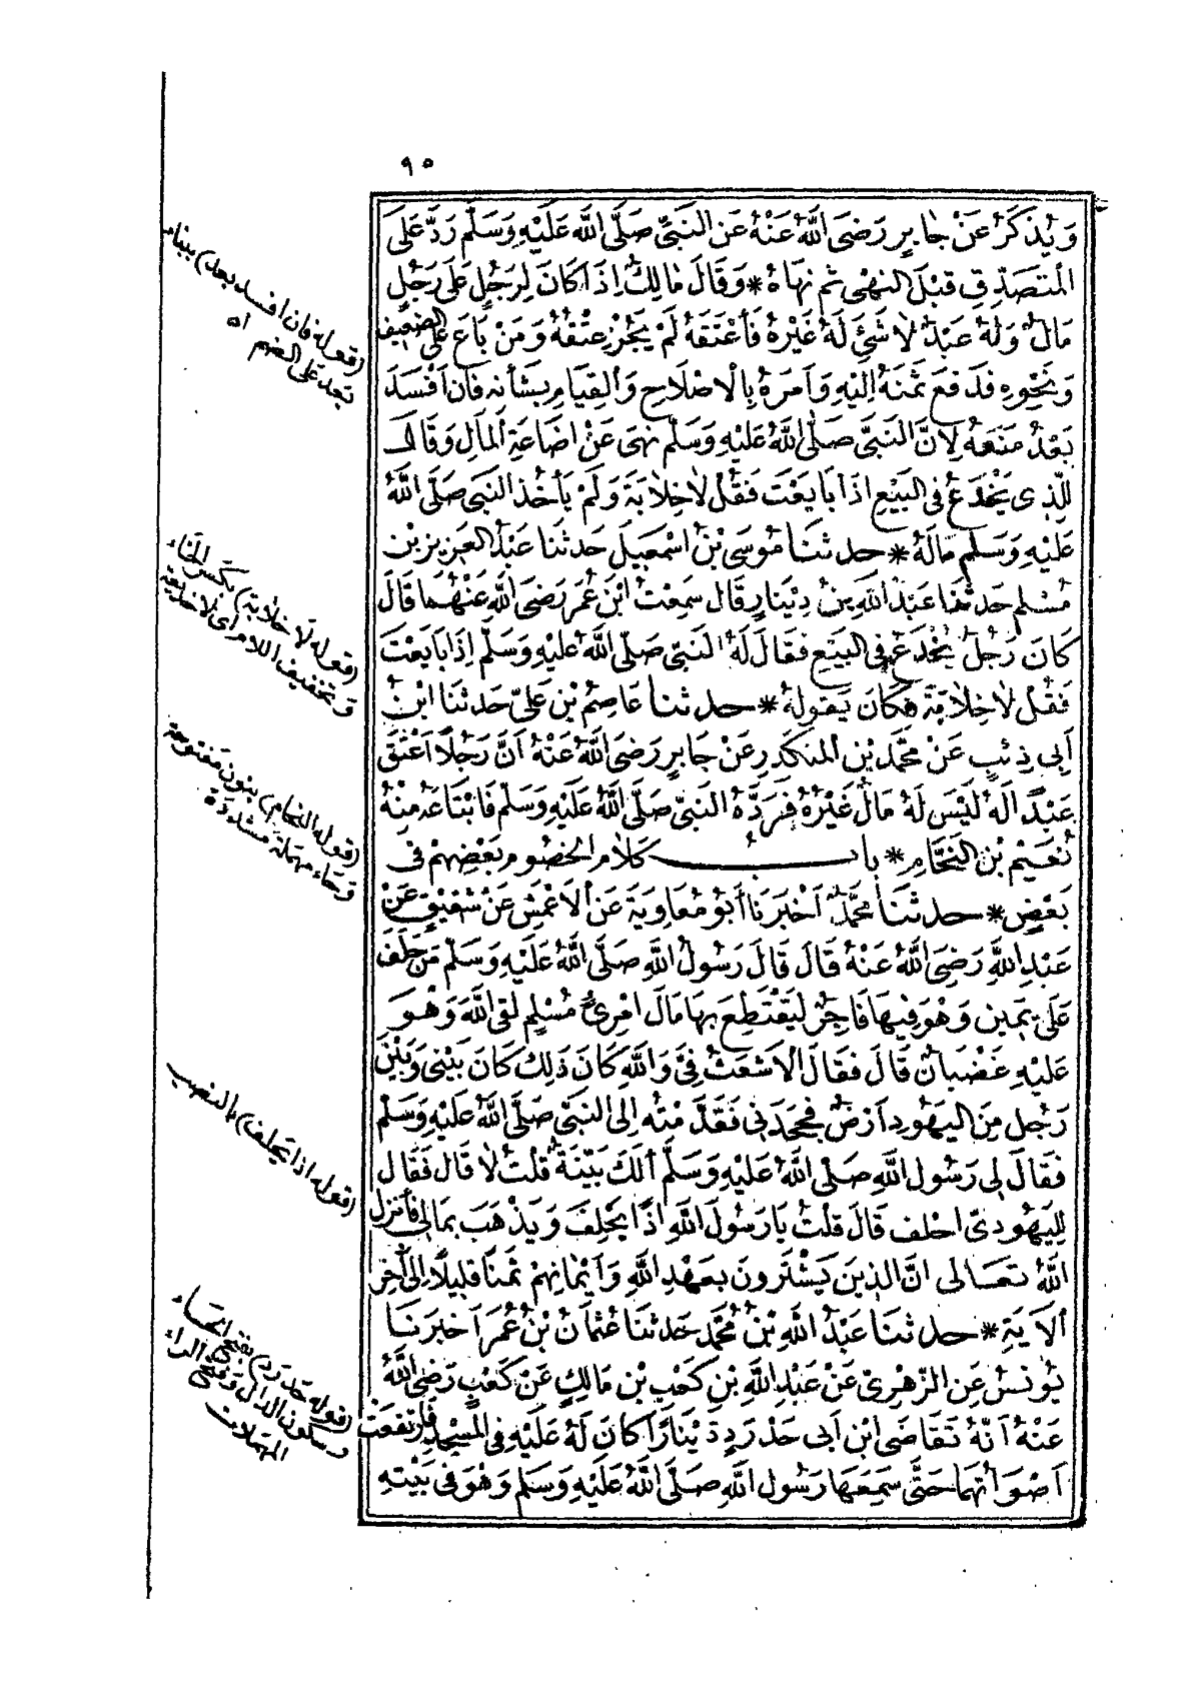 ٩٥
وَيُذْكَرُ عَنْ جَابِرٍ رَضِىَ اللَّهُ عَنْهُ عَنِ النَّبِىِّ صَلَّى اللَّهُ عَلَيْهِ وَسَلَّمَ رَدَّ عَلَى
الْمُتَصَدِّقِ قَبْلَ النَّهْىِ ثُمَّ نَهَاهُ * وَقَالَ مَالِكٌ إِذَا كَانَ لِرَجُلٍ عَلَى رَجُلٍ
مَالٌ وَلَهُ عَبْدٌ لَا شَىْءَ لَهُ غَيْرُهُ فَأَعْتَقَهُ لَمْ يَجُزْ عِتْقُهُ وَمَنْ بَاعَ عَلَى الضَّعِيفِ
وَنَحْوِهِ فَدَفَعَ ثَمَنَهُ إِلَيْهِ وَأَمَرَهُ بِالْإِصْلَاحِ وَالْقِيَامِ بِشَأْنِهِ فَإِنْ أَفْسَدَ
بَعْدُ مَنَعَهُ لِأَنَّ النَّبِىَّ صَلَّى اللَّهُ عَلَيْهِ وَسَلَّمَ نَهَى عَنْ إِضَاعَةِ الْمَالِ وَقَالَ
لِلَّذِى يُخْدَعُ فِى الْبَيْعِ إِذَا بَايَعْتَ فَقُلْ لَا خِلَابَةَ وَلَمْ يَأْخُذِ النَّبِىُّ صَلَّى اللَّهُ
عَلَيْهِ وَسَلَّمَ مَالَهُ * حدثنا مُوسَى بْنُ اسْمَعِيلَ حَدَثنَا عَبْدُ الْعَزِيزِ بْنُ
مُسْلِمٍ حَدثنَا عَبْدُ اللَّهِ بْنُ دِينَارٍ قَالَ سَمِعْتُ ابْنَ عُمَرَ رَضِىَ اللَّهُ عَنْهُمَا قَالَ
كَانَ رَجُلٌ يُخْدَعُ فِى الْبَيْعِ فَقَالَ لَهُ النَّبِىُّ صَلَّى اللَّهُ عَلَيْهِ وَسَلَّمَ إِذَا بَايَعْتَ
فَقُلْ لَا خِلَابَةَ فَكَانَ يَقُولُهُ * حدثنا عَاصِمُ بْنُ عَلِىٍّ حَدثنَا ابْنُ
أَبِى ذِئْبٍ عَنْ مُحَمَّدِ بْنِ الْمُنْكَدِرِ عَنْ جَابِرٍ رَضِىَ اللَّهُ عَنْهُ أَنَّ رَجُلًا أَعْتَقَ
عَبْدًا لَهُ لَيْسَ لَهُ مَالٌ غَيْرُهُ فَرَدَّهُ النَّبِىُّ صَلَّى اللَّهُ عَلَيْهِ وَسَلَّمَ فَابْتَاعَهُ مِنْهُ
نُعَيْمُ بْنُ النَّحَّامِ * باب كَلَامِ الْخُصُومِ بَعْضِهِمْ فِى
بَعْضٍ * حدثنا مُحَمَّدٌ أَخْبَرَنَا أَبُو مُعَاوِيَةَ عَنِ الْأَعْمَشِ عَنْ شَقِيقٍ عَنْ
عَبْدِ اللَّهِ رَضِىَ اللَّهُ عَنْهُ قَالَ قَالَ رَسُولُ اللَّهِ صَلَّى اللَّهُ عَلَيْهِ وَسَلَّمَ مَنْ حَلَفَ
عَلَى يَمِينٍ وَهُوَ فِيهَا فَاجِرٌ لِيَقْتَطِعَ بِهَا مَالَ امْرِئٍ مُسْلِمٍ لَقِىَ اللَّهَ وَهُوَ
عَلَيْهِ غَضْبَانُ قَالَ فَقَالَ الْأَشْعَثُ فِىَّ وَاللَّهِ كَانَ ذَلِكَ كَانَ بَيْنِى وَبَيْنَ
رَجُلٍ مِنَ الْيَهُودِ أَرْضٌ فَجَحَدَنِى فَقَدَّمْتُهُ إِلَى النَّبِىِّ صَلَّى اللَّهُ عَلَيْهِ وَسَلَّمَ
فَقَالَ لِى رَسُولُ اللَّهِ صَلَّى اللَّهُ عَلَيْهِ وَسَلَّمَ أَلَكَ بَيِّنَةٌ قُلْتُ لَا قَالَ فَقَالَ
لِلْيَهُودِىِّ احْلِفْ قَالَ قُلْتُ يَا رَسُولَ اللَّهِ إِذًا يَحْلِفَ وَيَذْهَبَ بِمَالِى فَأَنْزَلَ
اللَّهُ تَعَالَى إِنَّ الَّذِينَ يَشْتَرُونَ بِعَهْدِ اللَّهِ وَأَيْمَانِهِمْ ثَمَنًا قَلِيلًا إِلَى آخِرِ
الْآيَةِ * حدثنا عَبْدُ اللَّهِ بْنُ مُحَمَّدٍ حَدثنَا عُثْمَانُ بْنُ عُمَرَ أَخْبَرَنَا
يُونُسُ عَنِ الزُّهْرِىِّ عَنْ عَبْدِ اللَّهِ بْنِ كَعْبِ بْنِ مَالِكٍ عَنْ كَعْبٍ رَضِىَ اللَّهُ
عَنْهُ أَنَّهُ تَقَاضَى ابْنَ أَبِى حَدْرَدٍ دَيْنًا كَانَ لَهُ عَلَيْهِ فِى الْمَسْجِدِ فَارْتَفَعَتْ
أَصْوَاتُهُمَا حَتَّى سَمِعَهَا رَسُولُ اللَّهِ صَلَّى اللَّهُ عَلَيْهِ وَسَلَّمَ وَهُوَ فِى بَيْتِهِ
(قوله فان افسد بعد) ببناء
بعد على الضم اه
(قوله لا خلابة) بكسر الخاء
وتخفيف اللام اى لا خديعة
(قوله النحام) بنون مفتوحة
وحاء مهملة مشددة
(قوله اذا يحلف) بالنصب
(قوله حدرد) بفتح الحاء
وسكون الدال وفتح الراء
المهملات